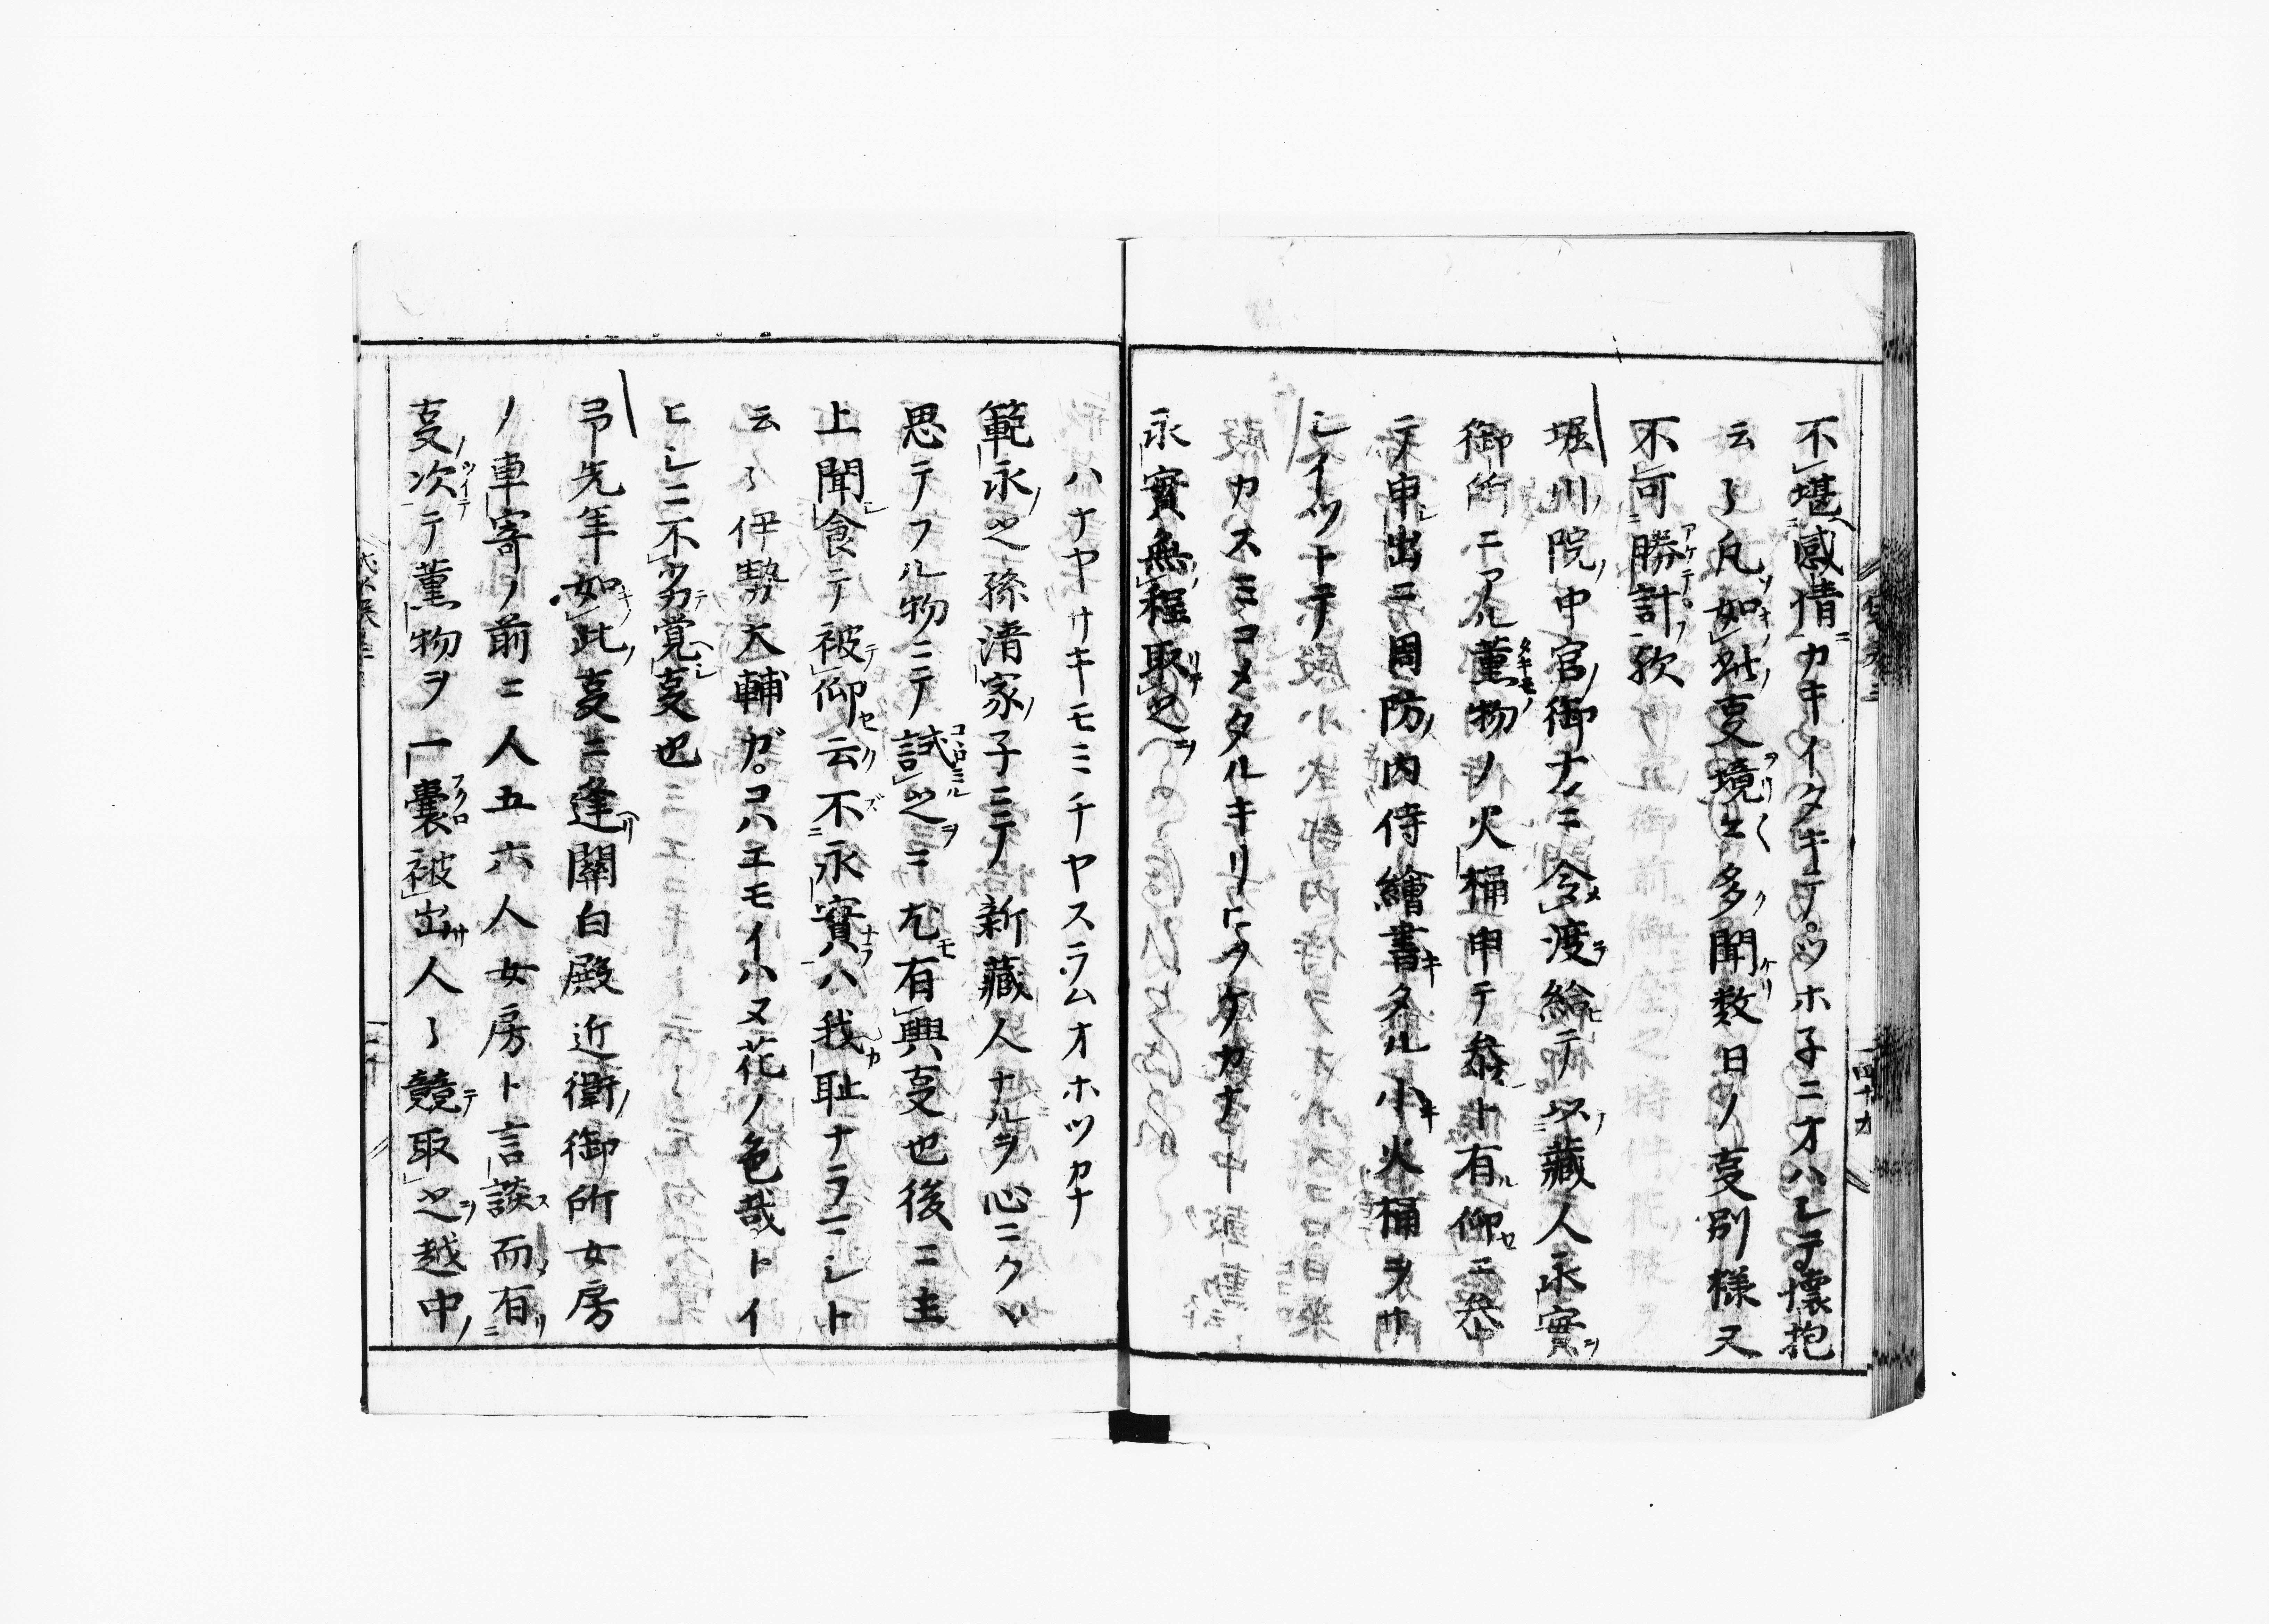 不堪感情カキイタキテツホ子ニオハシテ懐抱
云々凡如此叓境ニ多聞数日ノ叓別様又
不可勝計歟
堀川院中宮御ナニ令渡給テ以蔵人永實
御所ニアル薫物ノ火桶申テ参ト有仰ニ参
テ申出ニ周防内侍繪書タル小火桶ヲサ
シイツトテ
カスミコメタルキリヒヲケカナ
永實無程取之
ハナヤサキモミチヤスラムオホツカナ
範永之孫清家子ニテ新蔵人ナルヲ心ニクヽ
思テフル物ニテ試之ニ尤有興叓也後ニ主
上聞食テ被仰云不永實ハ我耻ナラマシト
云々伊勢大輔ガコハエモイハヌ花ノ色哉トイ
ヒシニ不劣覚叓也
弓先年如此叓ニ逢關白殿近衛御所女房
ノ車寄ノ前ニ人五六人女房ト言談而有
叓次テ薫物ヲ一嚢被出人々競取之越中